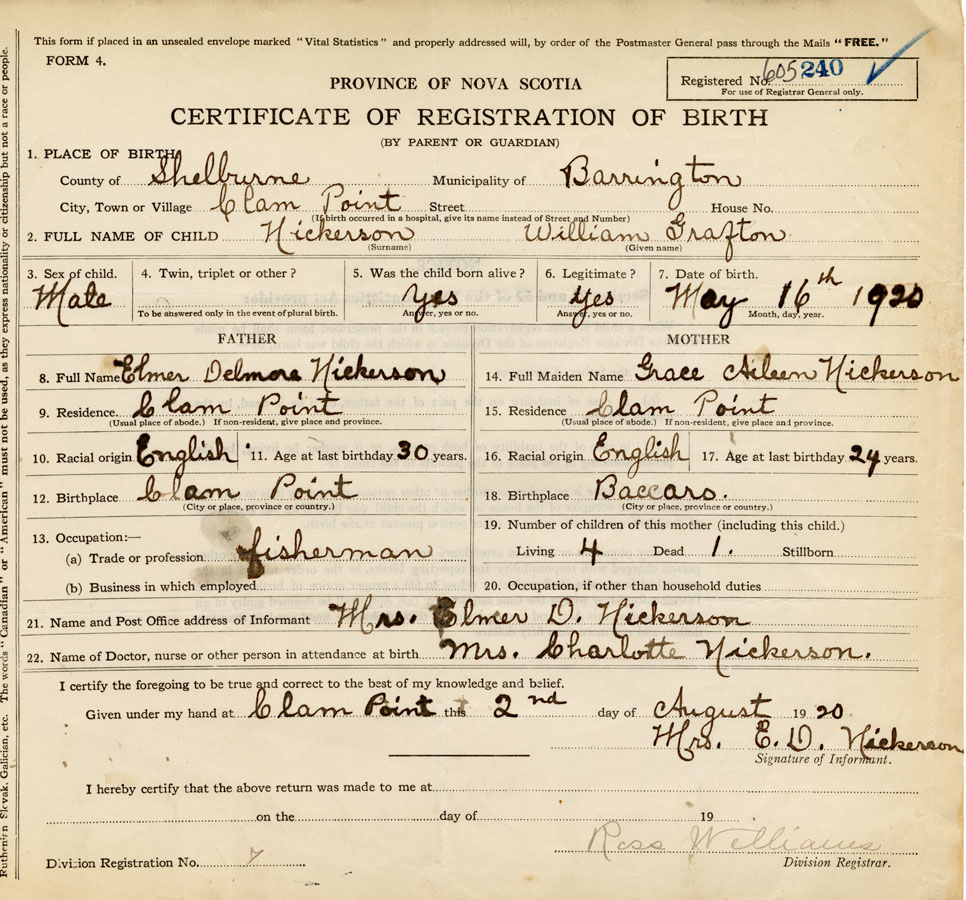 This form if placed in an unsealed envelope marked "Vital Statistics" and properly addressed will, by order of the Postmaster General pass through the Mails "FREE."
FORM 4.
Registered No. 605240
For use of Registrar General only.
PROVINCE OF NOVA SCOTIA
CERTIFICATE OF REGISTRATION OF BIRTH
(BY PARENT OR GUARDIAN)
1. PLACE OF BIRTH
County of Shelburne Municipality of Barrington
City, Town or Village Clam Point Street House No.
(If birth occurred in a hospital, give its name instead of Street and Number)
2. FULL NAME OF CHILD Nickerson William Grafton
(Surname) (Given name)
3. Sex of child. 4. Twin, triplet or other? 5. Was the child born alive? 6. Legitimate? 7. Date of birth.
Male Yes Yes May 16th 1920
To be answered only in the event of plural birth. Answer, yes or no. Answer, yes or no. Month, day, year.
FATHER MOTHER
8. Full Name Elmer Delmore Nickerson 14. Full Maiden Name Grace Aileen Nickerson
9. Residence. Clam Point 15. Residence Clam Point
(Usual place of abode.) If non-resident, give place and province. (Usual place of abode.) If non-resident, give place and province.
10. Racial origin English 11. Age at last birthday 30 years. 16. Racial origin English 17. Age at last birthday 24 years.
12. Birthplace Clam Point 18. Birthplace Baccaro.
(City or place, province or country.) (City or place, province or country.)
13. Occupation:— 19. Number of children of this mother (including this child.)
(a) Trade or profession fisherman Living 4 Dead 1. Stillborn
(b) Business in which employed 20. Occupation, if other than household duties
21. Name and Post Office address of Informant Mrs. Elmer D. Nickerson
22. Name of Doctor, nurse or other person in attendance at birth Mrs. Charlotte Nickerson.
I certify the foregoing to be true and correct to the best of my knowledge and belief.
Given under my hand at Clam Point this 2nd day of August 1920
Mrs. E. D. Nickerson
Signature of Informant.
I hereby certify that the above return was made to me at
on the day of 19
Ross Williams
Division Registrar.
Division Registration No. 7
Ruthenian Slovak, Galician, etc. The words "Canadian" or "American" must not be used, as they express nationality or citizenship but not a race or people.